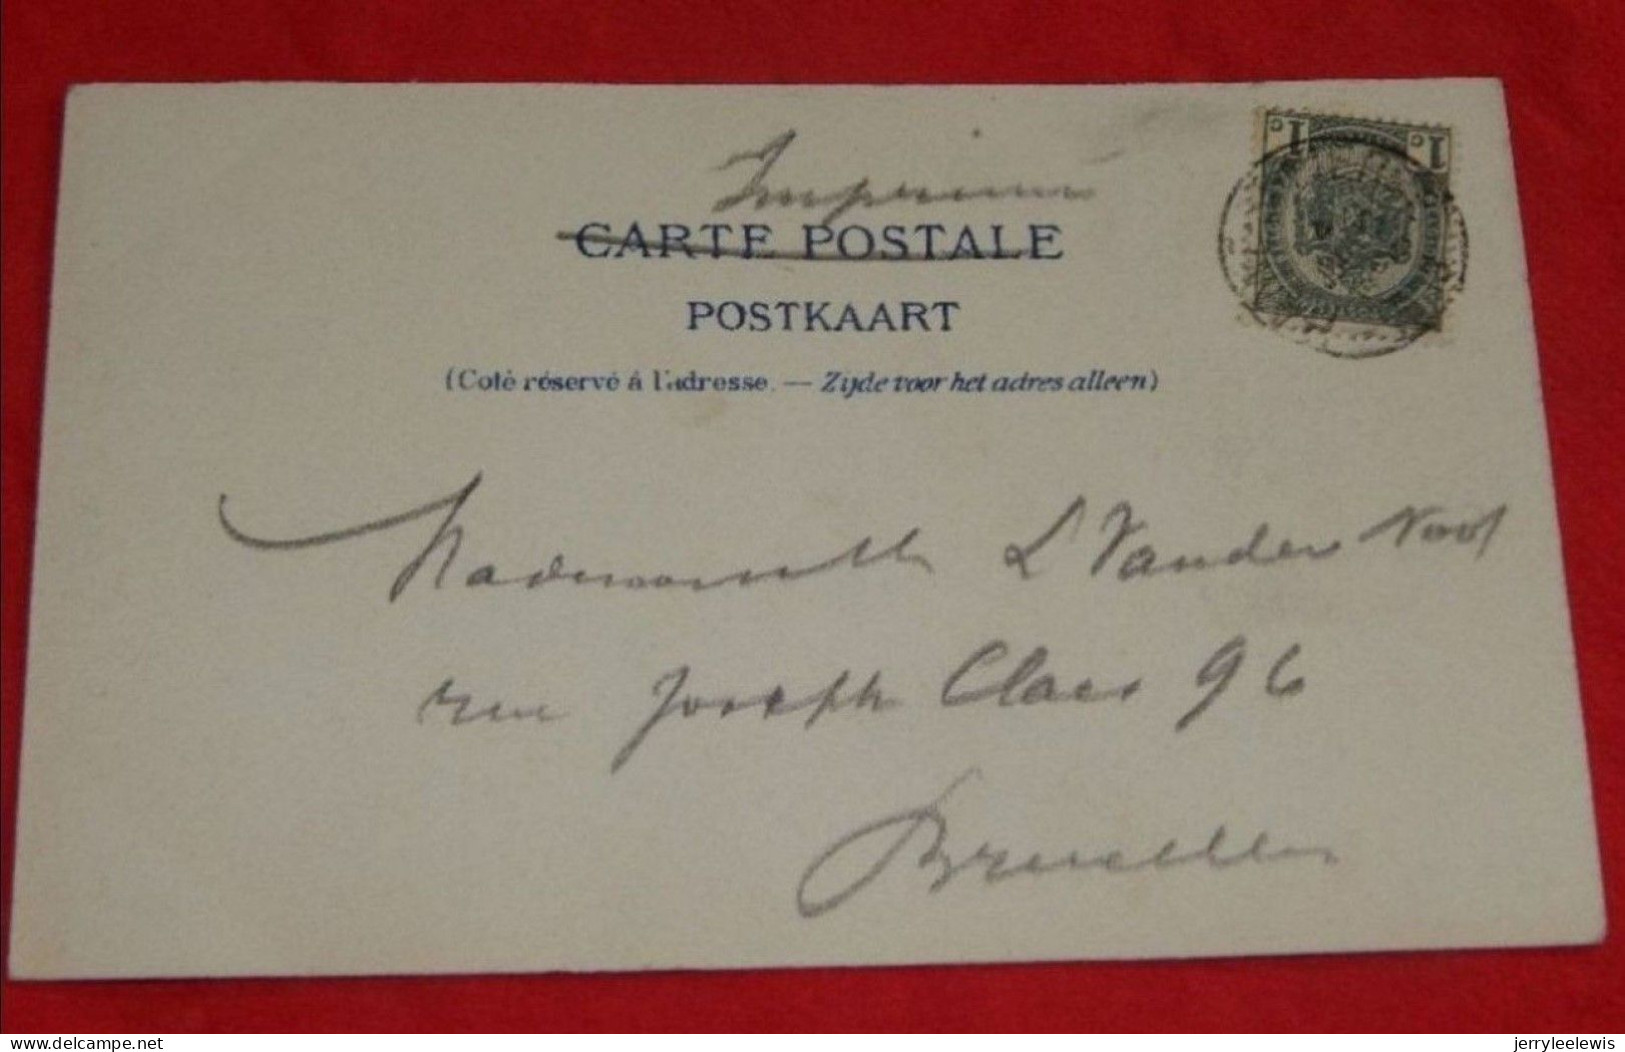 Imprimé
CARTE POSTALE
POSTKAART
(Coté réservé á l'adresse. — Zijde voor het adres alleen)
1 c 1 c
Mademoiselle L Vander Noot
rue Joseph Claes 96
Bruxelles
www.delcampe.net
jerryleelewis